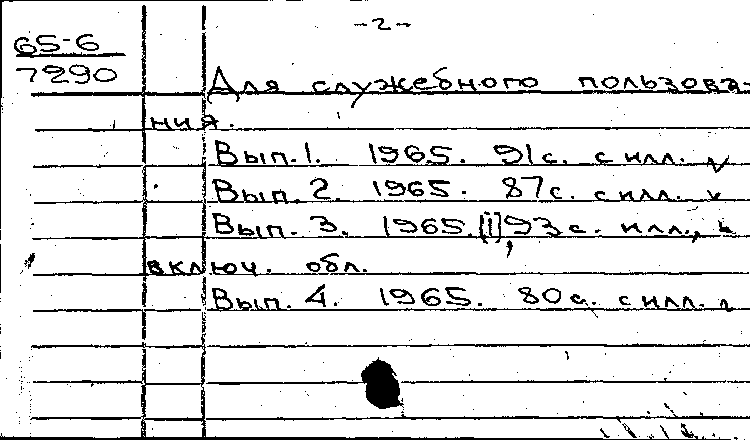 -2-
65-6
7290
Для служебного пользова-
ния.
Вып. 1. 1965. 91 с. с илл.
Вып. 2. 1965. 87 с. с илл.
Вып. 3. 1965. [1], 93 с. илл.,
включ. обл.
Вып. 4. 1965. 80 с. с илл.